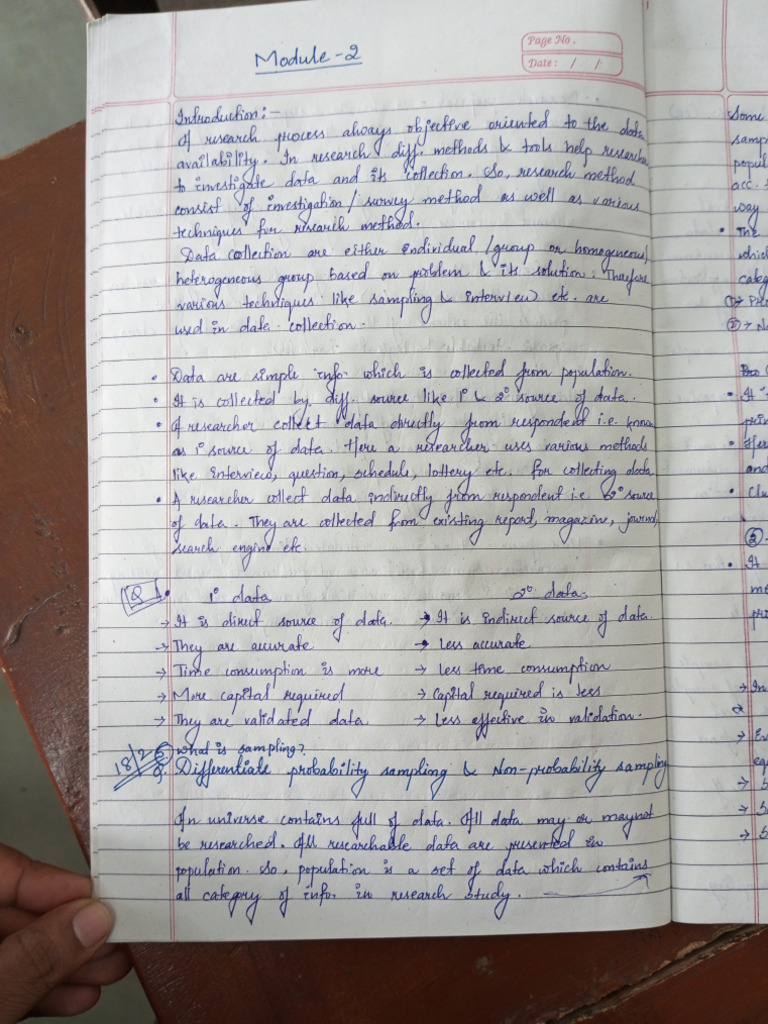 Module - 2
Page No.
Date: / /
Introduction :-
A research process always objective oriented to the data
availability. In research diff. methods & tools help researcher
to investigate data and its collection. So, research method
consist of investigation / survey method as well as various
techniques for research method.
Data collection are either individual / group or homogeneous/
heterogeneous group based on problem & its solution. Therfore
various techniques like sampling & interview etc. are
used in data collection.
• Data are simple info. which is collected from population.
• It is collected by diff. source like 1° & 2° source of data.
• A researcher collect data directly from respondent i.e. known
as 1° source of data. Here a researcher uses various methods
like interview, question, schedule, lottery etc. for collecting data
• A researcher collect data indirectly from respondent i.e. 2° source
of data. They are collected from existing report, magazine, journal,
search engine etc.
Q. 1° data 2° data.
→ It is direct source of data. → It is indirect source of data.
→ They are accurate → Less accurate
→ Time consumption is more → Less time consumption
→ More capital required → Capital required is less
→ They are validated data → Less effective in validation.
What is sampling?
Q. Differentiate probability sampling & Non-probability sampling
An universe contains full of data. All data may or maynot
be researched. All researchable data are presented in
population. So, population is a set of data which contains
all category of info. in research study.
Some
samp
popul
acc.
way
• The
which
categ
①→
②→ N
• It
prin
• Her
and
• Clu
②
• It
me
pr
→ In
→ Ev
eq